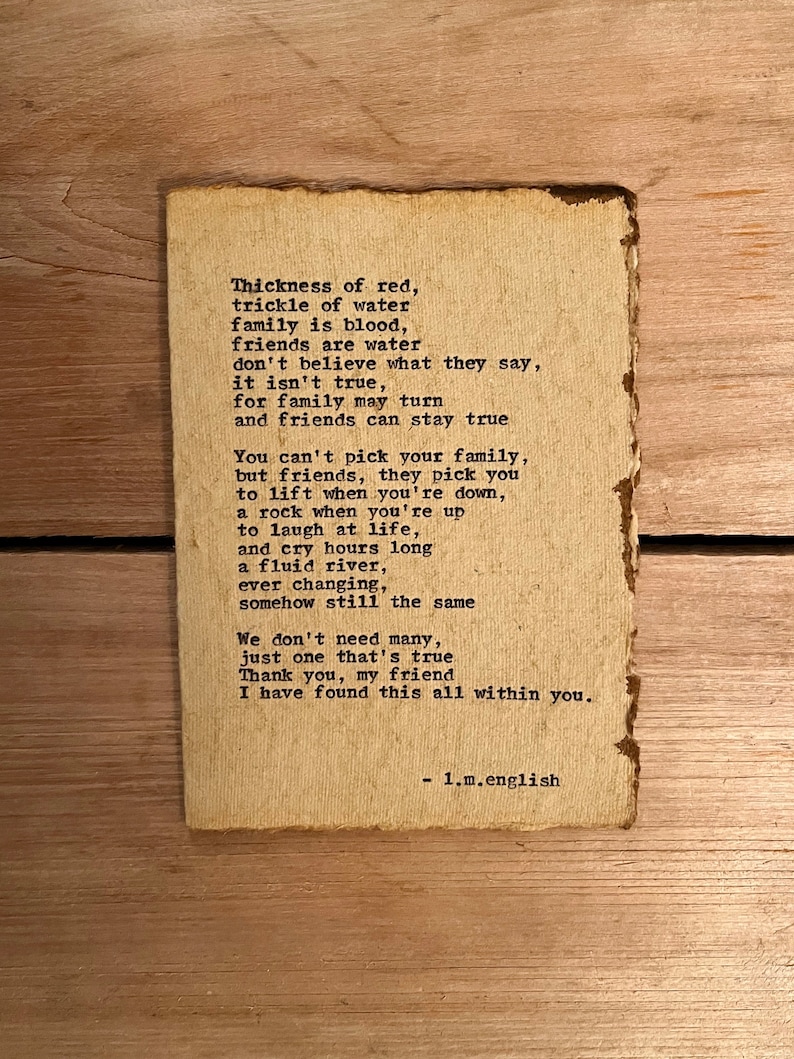 Thickness of red,
trickle of water
family is blood,
friends are water
don't believe what they say,
it isn't true,
for family may turn
and friends can stay true
You can't pick your family,
but friends, they pick you
to lift when you're down,
a rock when you're up
to laugh at life,
and cry hours long
a fluid river,
ever changing,
somehow still the same
We don't need many,
just one that's true
Thank you, my friend
I have found this all within you.
- l.m.english